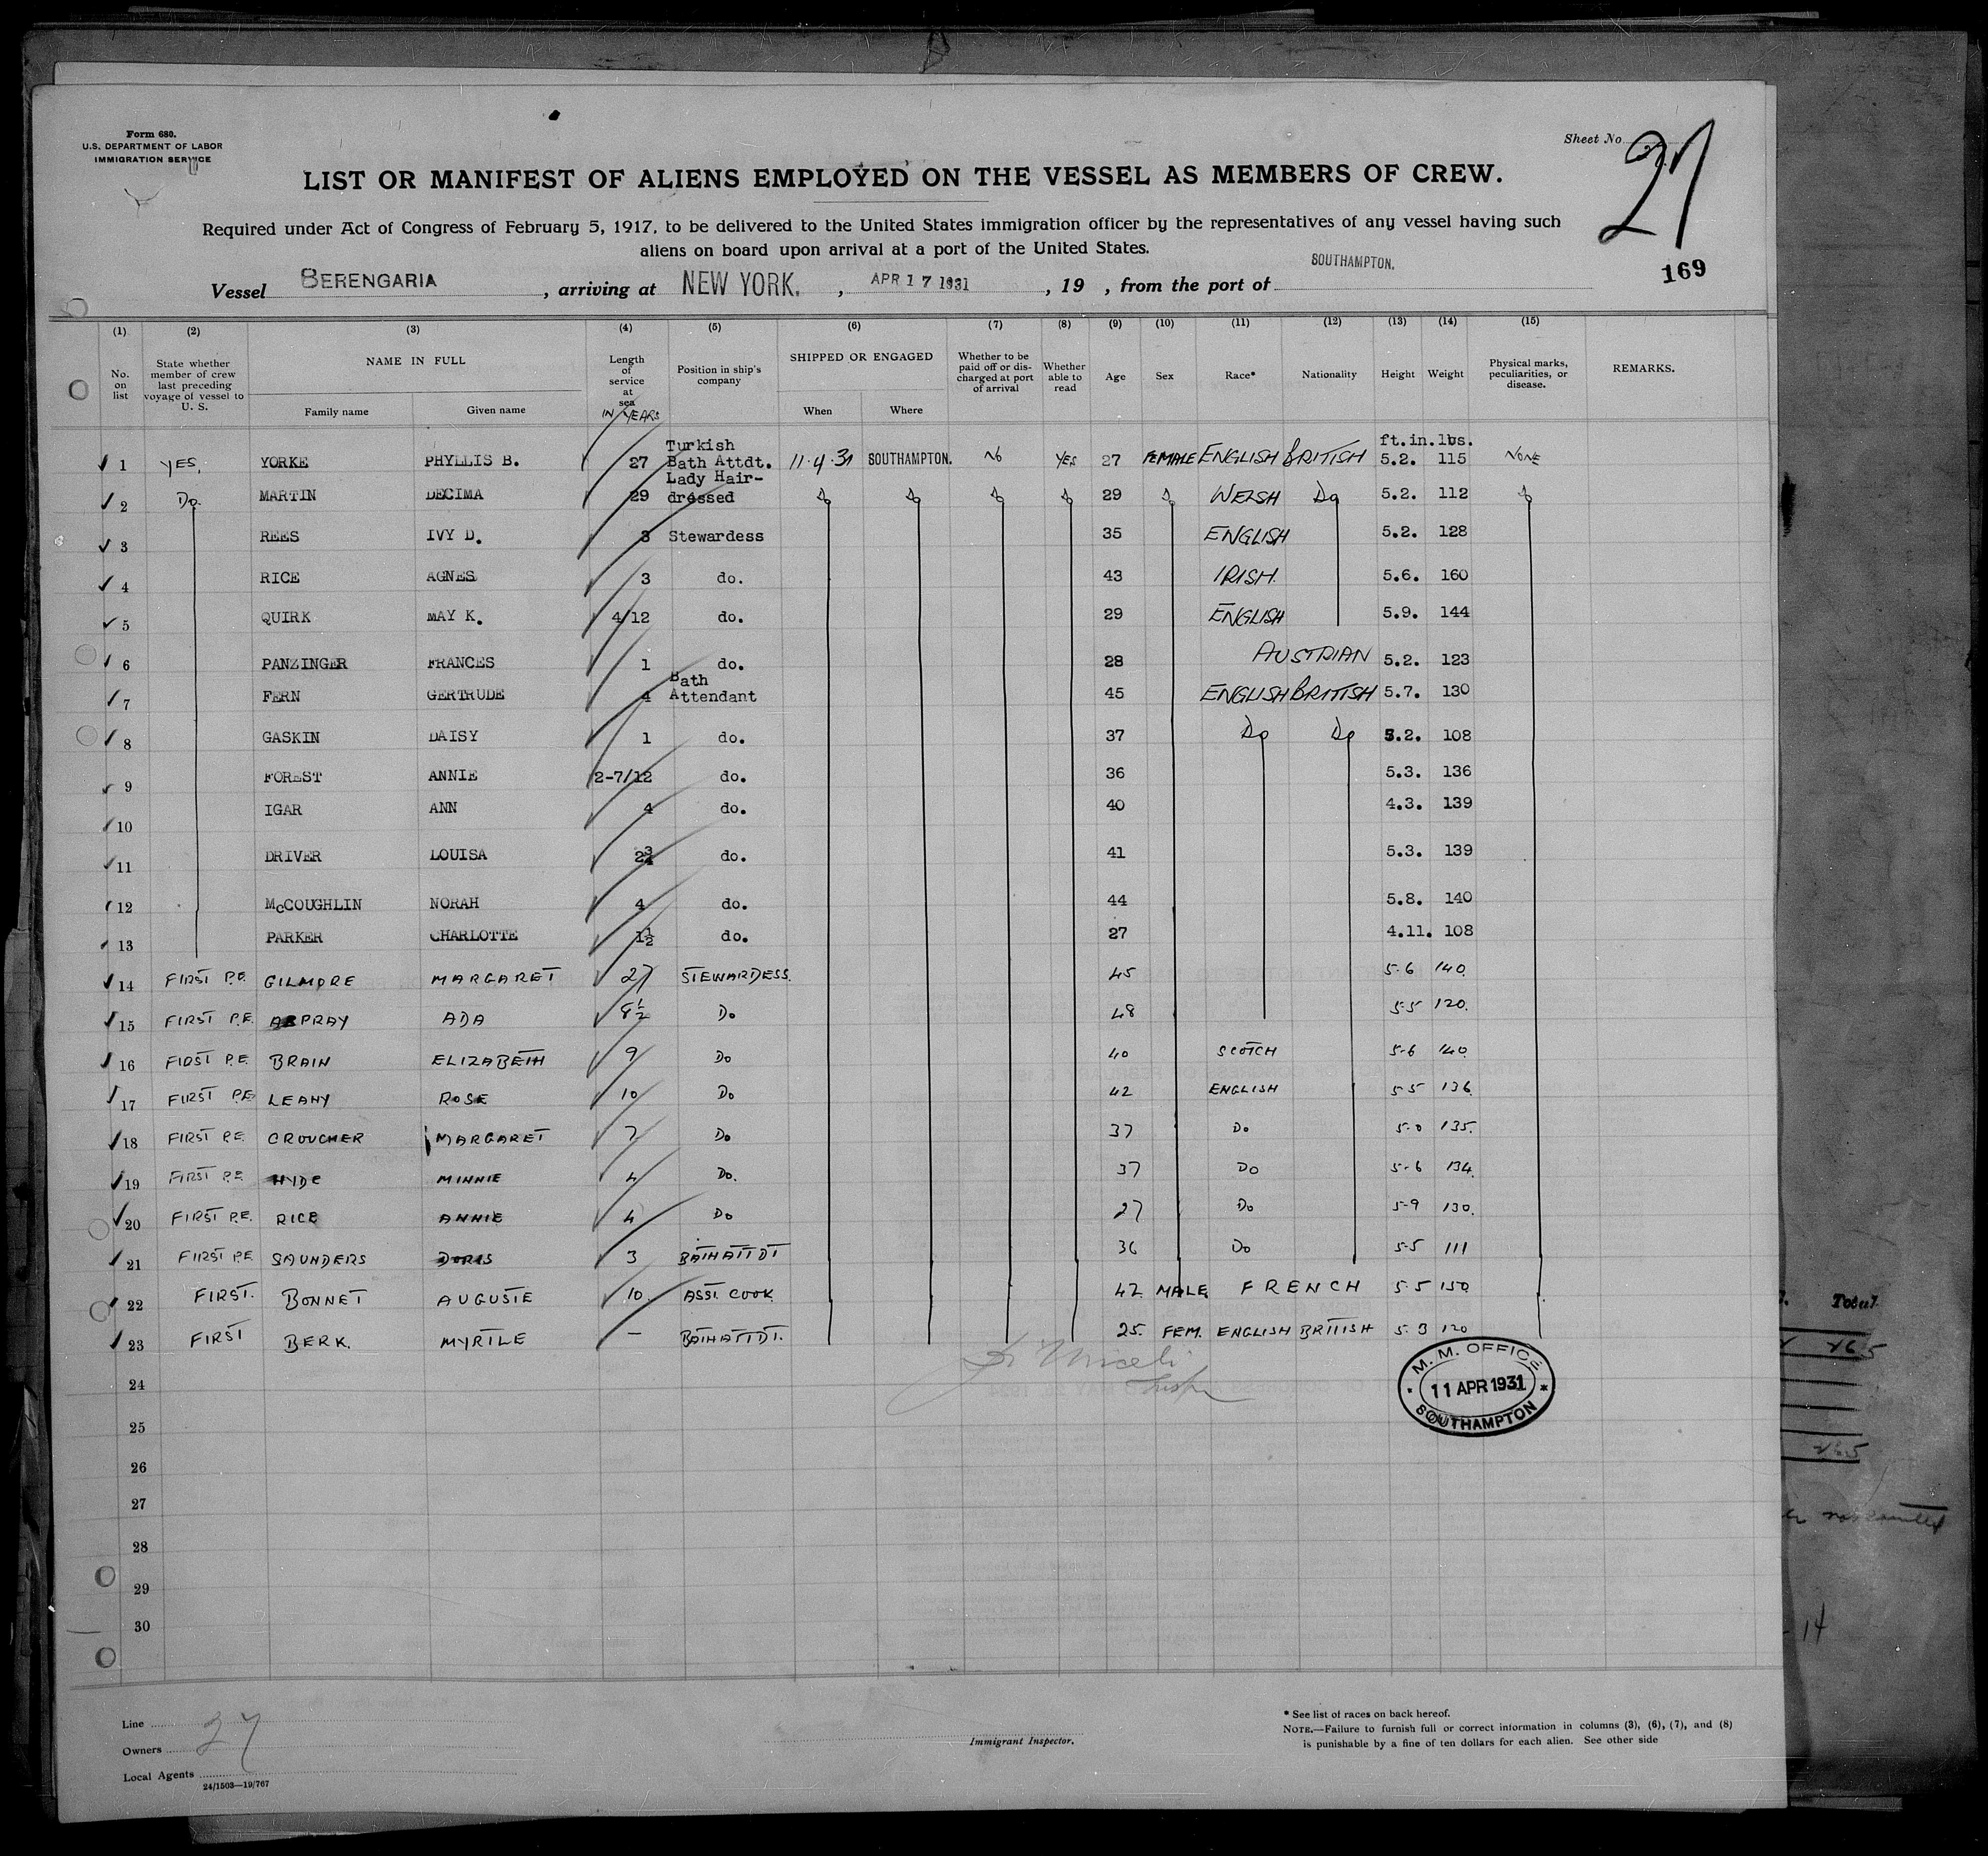 Form 680.
U.S. DEPARTMENT OF LABOR
IMMIGRATION SERVICE
Sheet No. 27
LIST OR MANIFEST OF ALIENS EMPLOYED ON THE VESSEL AS MEMBERS OF CREW.
Required under Act of Congress of February 5, 1917, to be delivered to the United States immigration officer by the representatives of any vessel having such
aliens on board upon arrival at a port of the United States.
169
Vessel BERENGARIA, arriving at NEW YORK., APR 17 1931, 19 , from the port of SOUTHAMPTON.
(1) (2) (3) (4) (5) (6) (7) (8) (9) (10) (11) (12) (13) (14) (15)
No. on list State whether member of crew last preceding voyage of vessel to U. S. NAME IN FULL Family name Given name Length of service at sea IN YEARS Position in ship's company SHIPPED OR ENGAGED When Where Whether to be paid off or discharged at port of arrival Whether able to read Age Sex Race* Nationality Height Weight Physical marks, peculiarities, or disease. REMARKS.
ft.in. lbs.
1 YES, YORKE PHYLLIS B. 27 Turkish Bath Attdt. 11·4·31 SOUTHAMPTON. No YES 27 FEMALE ENGLISH BRITISH 5.2. 115 NONE
2 Do. MARTIN DECIMA 29 Lady Hair-dressed Do Do Do Do 29 Do WELSH Do 5.2. 112 Do
3 REES IVY D. 3 Stewardess 35 ENGLISH 5.2. 128
4 RICE AGNES 3 do. 43 IRISH. 5.6. 160
5 QUIRK MAY K. 4/12 do. 29 ENGLISH 5.9. 144
6 PANZINGER FRANCES 1 do. 28 AUSTRIAN 5.2. 123
7 FERN GERTRUDE 4 Bath Attendant 45 ENGLISH BRITISH 5.7. 130
8 GASKIN DAISY 1 do. 37 Do Do 5.2. 108
9 FOREST ANNIE 2-7/12 do. 36 5.3. 136
10 IGAR ANN 4 do. 40 4.3. 139
11 DRIVER LOUISA 2¾ do. 41 5.3. 139
12 McCOUGHLIN NORAH 4 do. 44 5.8. 140
13 PARKER CHARLOTTE 1½ do. 27 4.11. 108
14 FIRST P.E. GILMORE MARGARET 27 STEWARDESS. 45 5-6 140.
15 FIRST P.E. ASPRAY ADA 8½ Do 48 5-5 120.
16 FIRST P.E. BRAIN ELIZABETH 9 Do 40 SCOTCH 5-6 140.
17 FIRST P.E. LEAHY ROSE 10 Do 42 ENGLISH 5-5 136.
18 FIRST P.E. CROUCHER MARGARET 7 Do 37 Do 5-0 135.
19 FIRST P.E. HYDE MINNIE 4 Do. 37 Do 5-6 134.
20 FIRST P.E. RICE ANNIE 4 Do 27 Do 5-9 130.
21 FIRST P.E. SAUNDERS DORIS 3 BATH ATTDT 36 Do 5-5 111
22 FIRST. BONNET AUGUSTE 10. ASST. COOK. 42. MALE. FRENCH 5-5 150
23 FIRST BERK. MYRTLE — BATH ATTDT. 25. FEM. ENGLISH BRITISH 5.3 120
24
25
26
27
28
29
30
M. M. OFFICE
11 APR 1931
SOUTHAMPTON
Total
265
265
14
Line
Owners
Local Agents
27
24/1503—19/767
Immigrant Inspector.
* See list of races on back hereof.
NOTE.—Failure to furnish full or correct information in columns (3), (6), (7), and (8)
is punishable by a fine of ten dollars for each alien. See other side